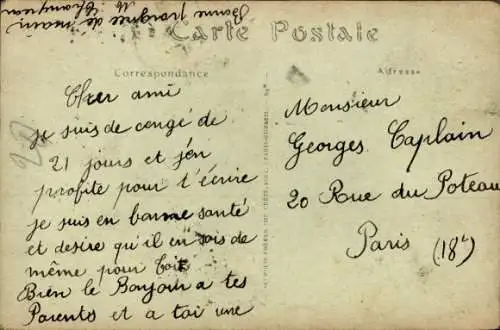 Carte Postale
Correspondance
Adresse
Cher ami
je suis de congé de
21 jours et j'en
profite pour t'écrire
je suis en bonne santé
et desire qu'il en sois de
même pour toit
Bien le Bonjour a tes
Parents et a toi une
bonne poignée de main
Monsieur
Georges Caplain
20 Rue du Poteau
Paris (18e)